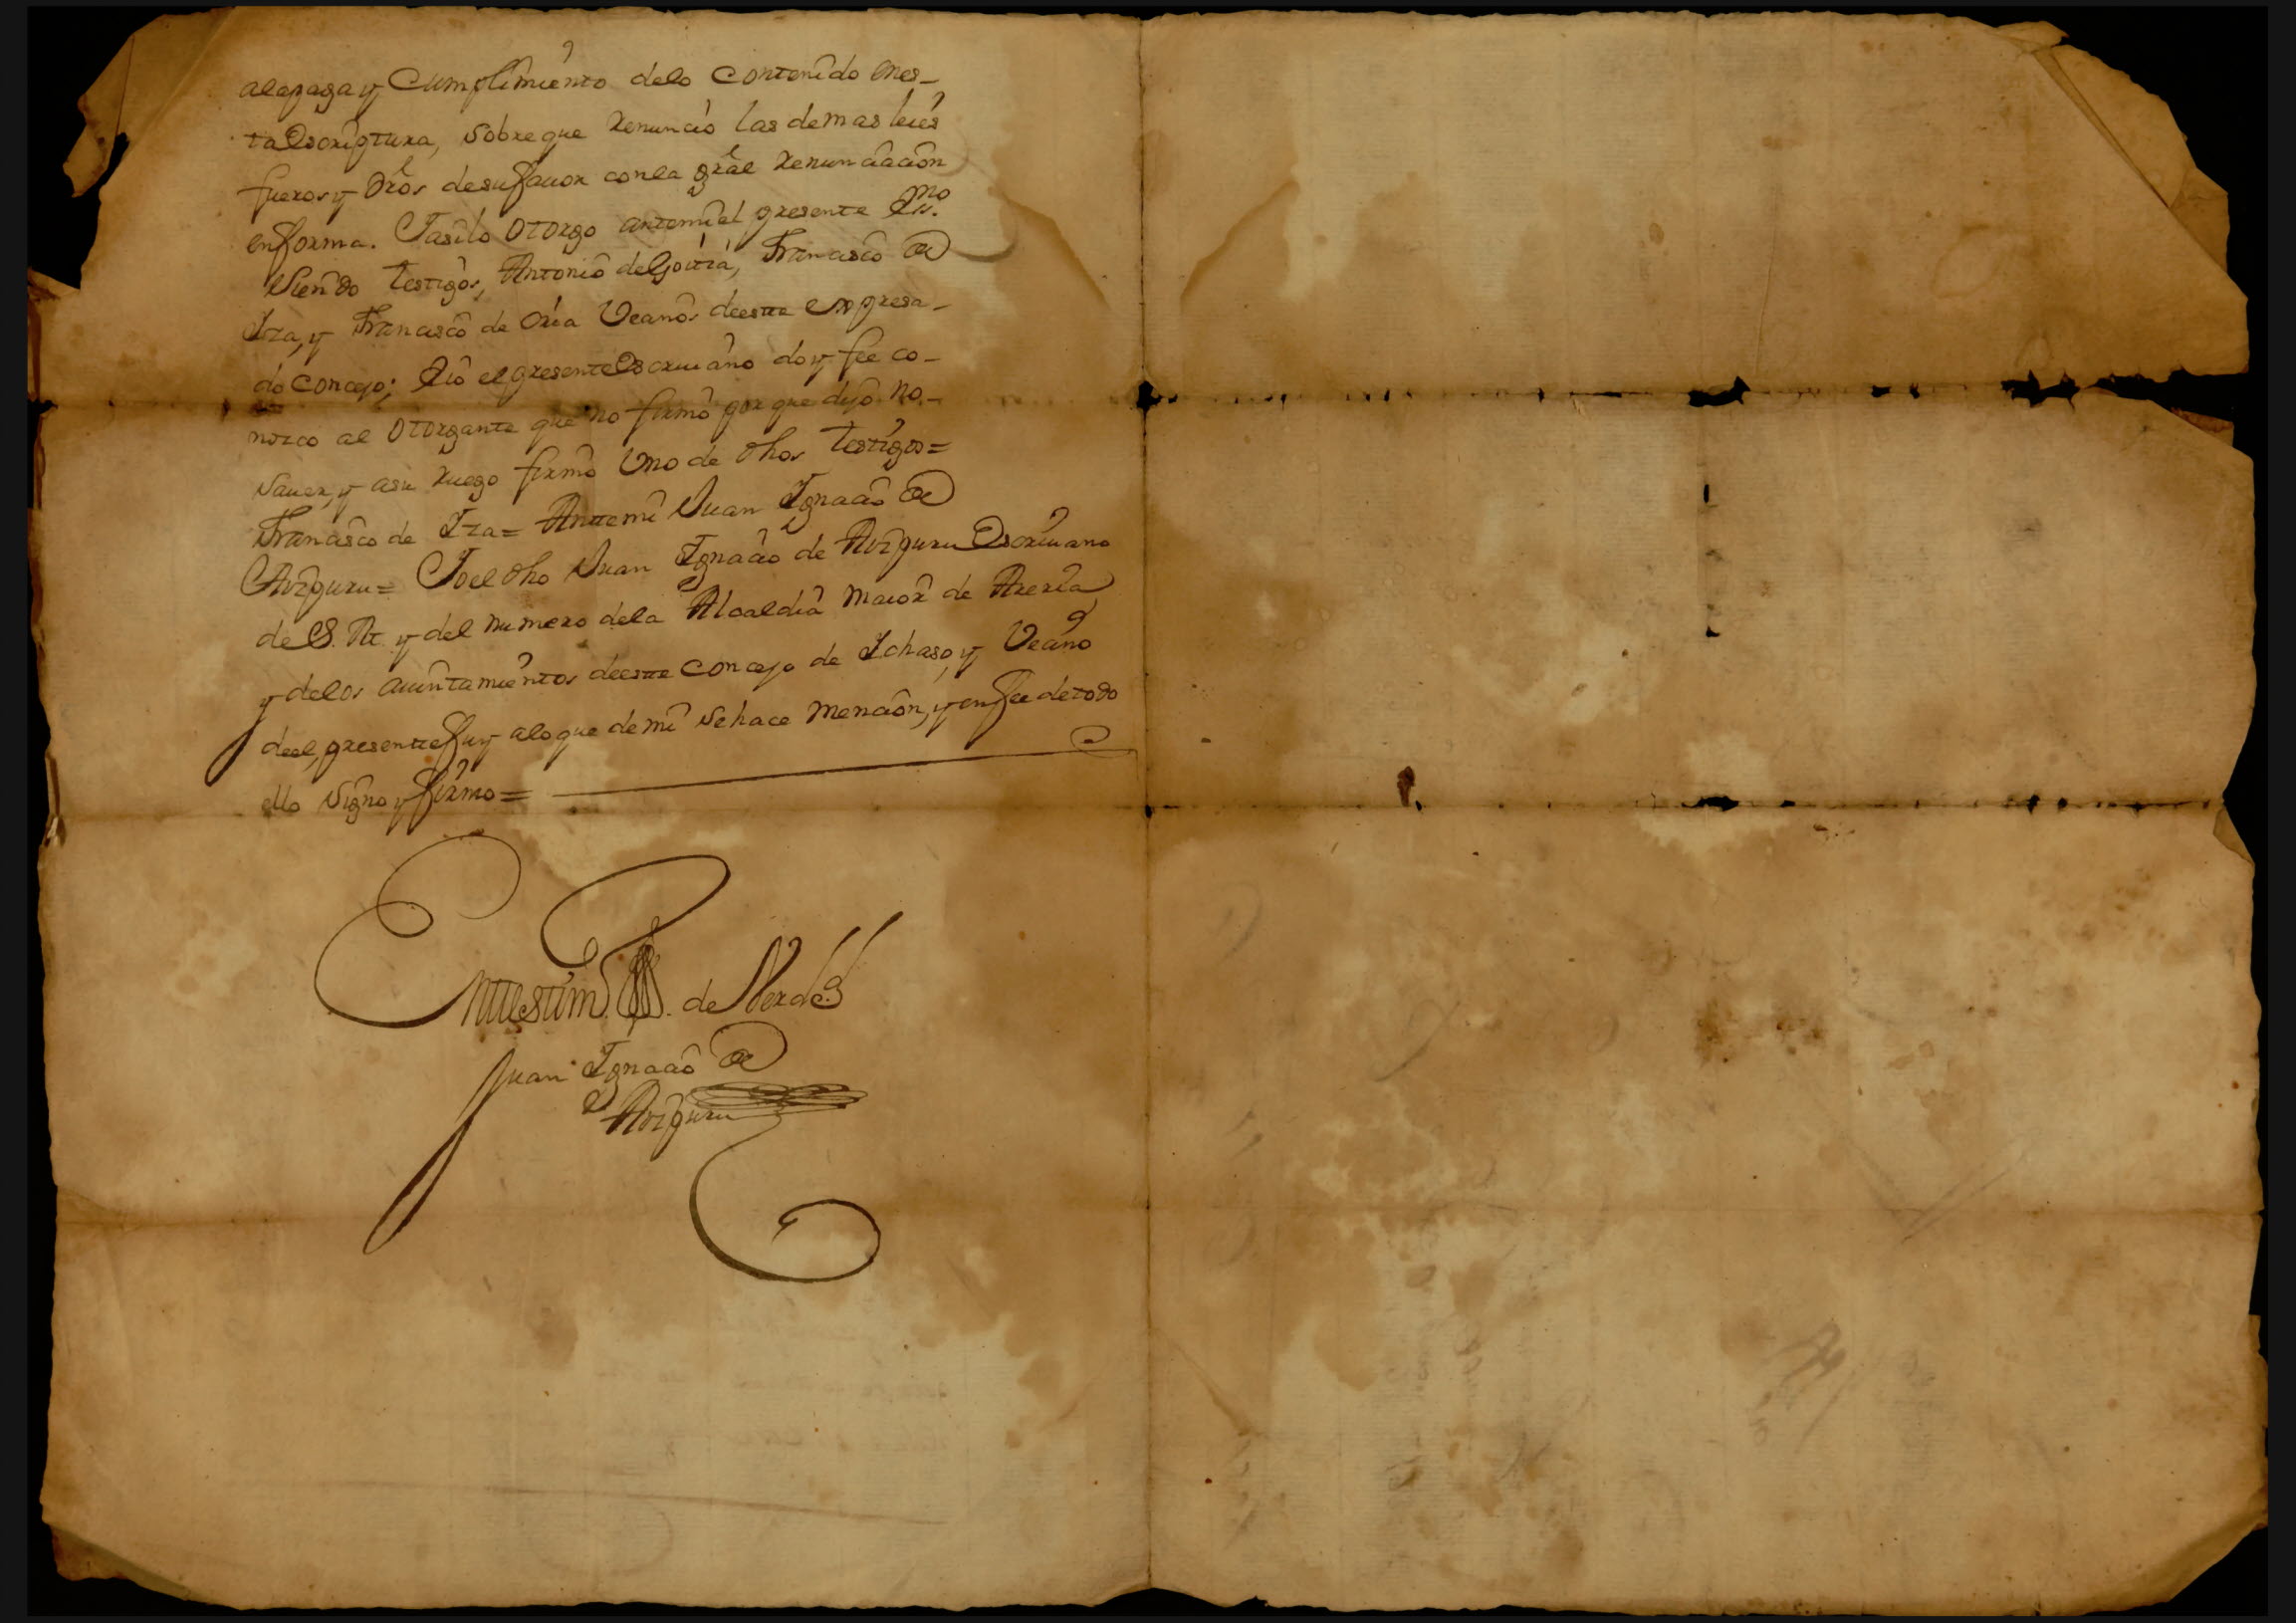 alapaga y Cumplimiento delo Contenido enes-
ta Escriptura, sobre que Renunció las demas leies
fueros y Dros desu fauor conla gral Renunciacion
en forma. Iasilo Otorgo antemi el presente Ssno.
Siendo testigos, Antonio de Goitia, Francisco de
Iza, y Francisco de Oria Vecinos deeste expresa-
do Concejo; Éio el presente Escriuano doy fee co-
nozco al Otorgante que no firmó porque dijo no-
sauer, y asu ruego firmó Uno de dhos testigos=
Francisco de Iza= Antemi Juan Ignacio de
Aizpuru= Io el dho Juan Ignacio de Aizpuru Escriuano
de S. M. y del numero dela Alcaldia maior deAreria
y delos aiuntamientos deeste Concejo de Ichaso, y Vecino
deel, presente fuy alo que de mi se hace mencion, y en fee de todo
ello signo y firmo=
En testim. de Verdad
Juan Ignacio de
Aizpuru